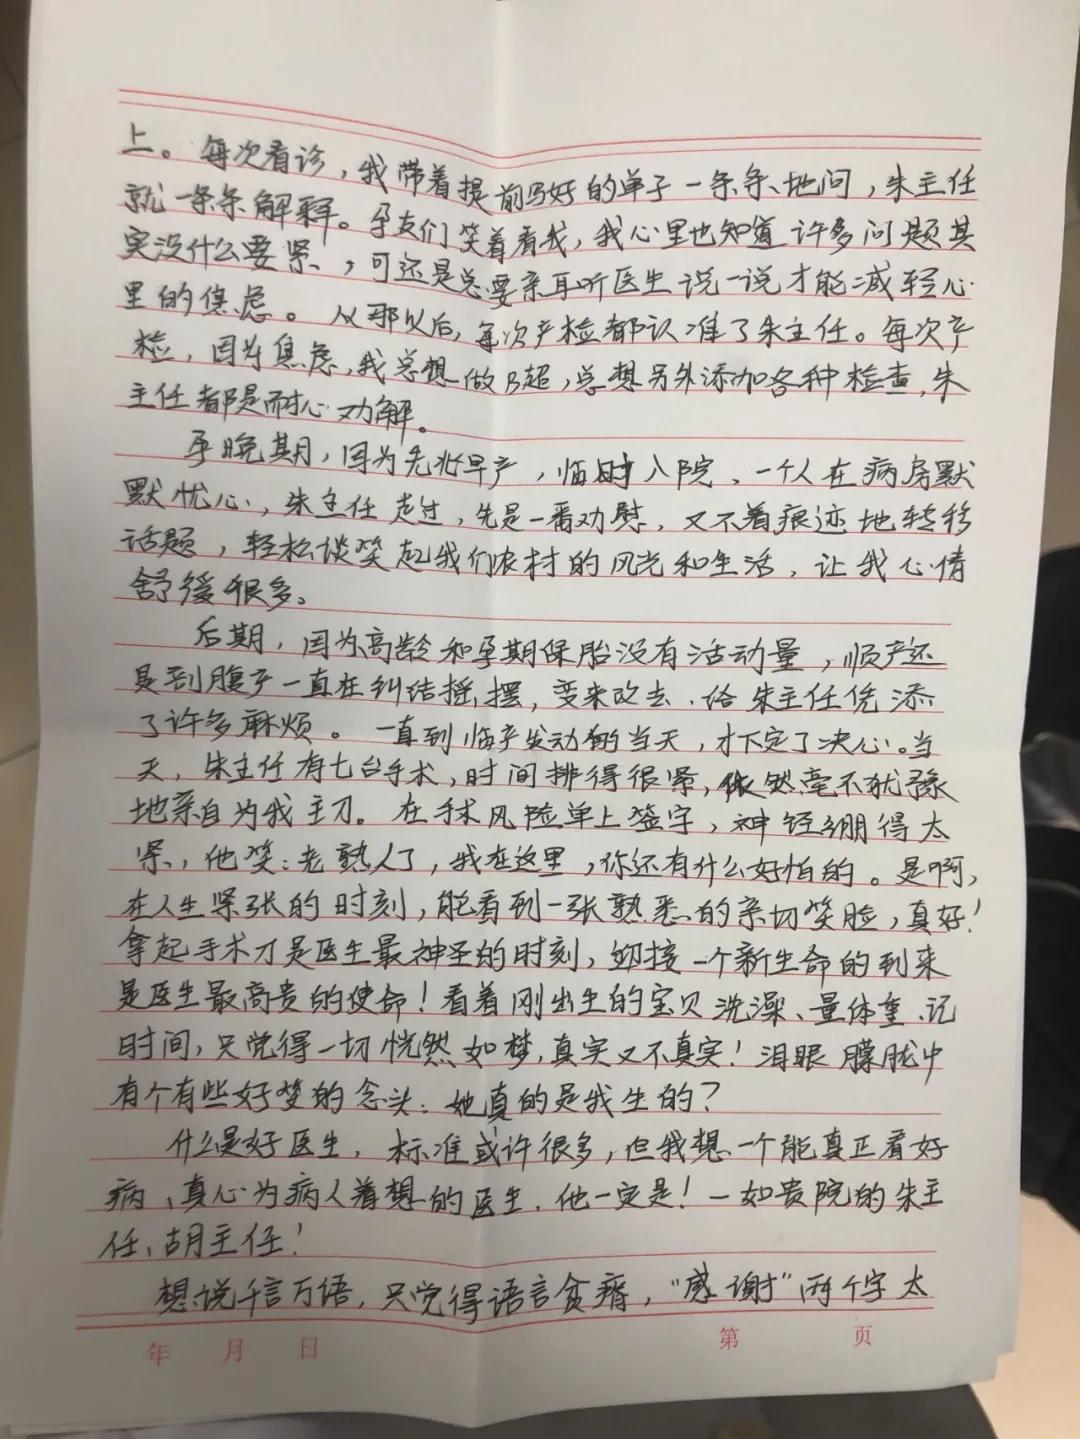 上。每次看诊，我带着提前写好的单子一条条地问，朱主任
就一条条解释。孕友们笑着看我，我心里也知道许多问题其
实没什么要紧，可还是总要亲耳听医生说一说才能减轻心
里的焦虑。从那以后，每次产检都认准了朱主任。每次产
检，因为焦虑，我总想做B超，总想另外添加各种检查，朱
主任都是耐心劝解。
孕晚期，因为先兆早产，临时入院，一个人在病房默
默忧心，朱主任走过，先是一番劝慰，又不着痕迹地转移
话题，轻松谈笑起我们农村的风光和生活，让我心情
舒缓很多。
后期，因为高龄和孕期保胎没有活动量，顺产还
是剖腹产一直在纠结摇摆，变来改去，给朱主任凭添
了许多麻烦。一直到临产发动的当天，才下定了决心。当
天，朱主任有七台手术，时间排得很紧，依然毫不犹豫
地亲自为我主刀。在手术风险单上签字，神经绷得太
紧，他笑：老熟人了，我在这里，你还有什么好怕的。是啊，
在人生紧张的时刻，能看到一张熟悉的亲切笑脸，真好！
拿起手术刀是医生最神圣的时刻，迎接一个新生命的到来
是医生最高贵的使命！看着刚出生的宝贝洗澡、量体重、记
时间，只觉得一切恍然如梦，真实又不真实！泪眼朦胧中
有个有些好笑的念头：她真的是我生的？
什么是好医生，标准或许很多，但我想一个能真正看好
病、真心为病人着想的医生，他一定是！一如贵院的朱主
任、胡主任！
想说千言万语，只觉得语言贫瘠，“感谢”两个字太
年 月 日 第 页